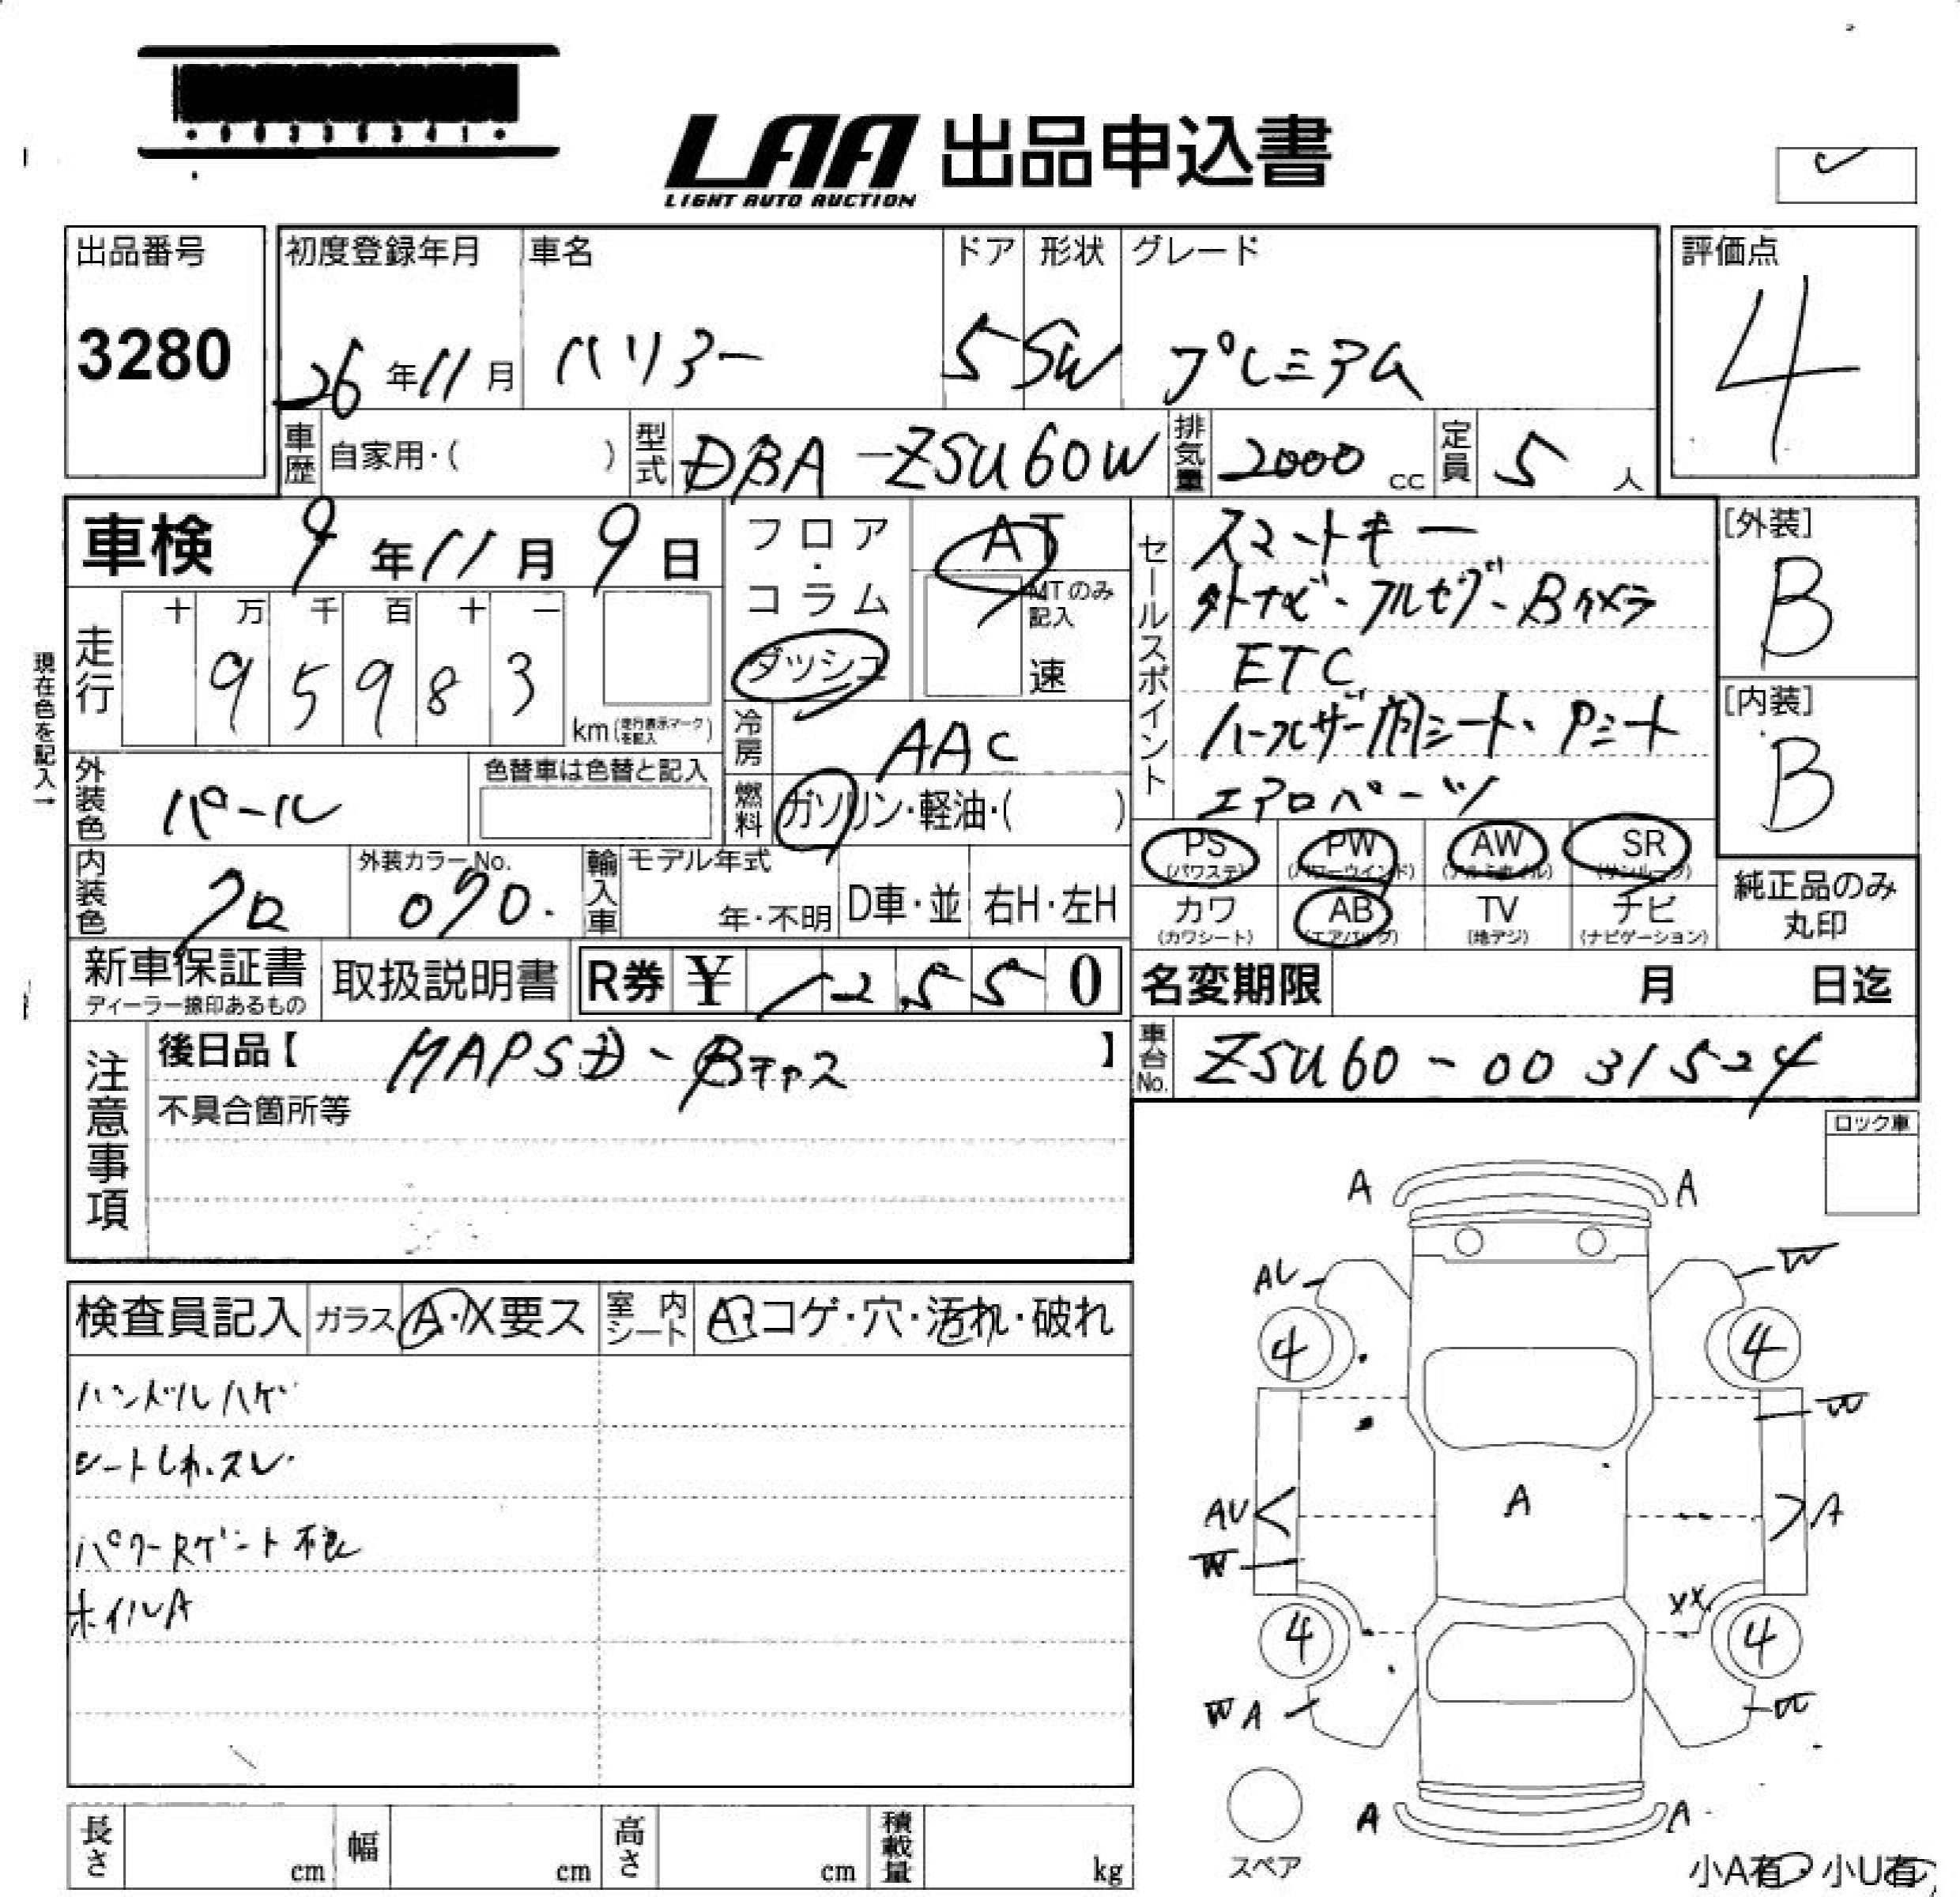 LAA 出品申込書
LIGHT AUTO AUCTION
出品番号
3280
初度登録年月
26年11月
車名
ハリアー
ドア
5
形状
SW
グレード
プレミアム
評価点
4
車歴 自家用・( )
型式 DBA-ZSU60W
排気量 2000 cc
定員 5 人
車検 9年11月9日
フロア・コラム
ダッシュ
AT
MTのみ記入
速
セールスポイント
スマートキー
外ナビ・フルセグ・Bカメラ
ETC
ハーフレザー調シート・Pシート
エアロパーツ
[外装]
B
[内装]
B
現在色を記入→
走行
十 万 千 百 十 一
9 5 9 8 3
km(走行表示マークを記入)
冷房 AAC
外装色 パール
色替車は色替と記入
燃料 ガソリン・軽油・( )
PS (パワステ)
PW (パワーウインド)
AW (アルミホイル)
SR (サンルーフ)
内装色 クロ
外装カラーNo.
070.
輸入車
モデル年式
年・不明
D車・並
右H・左H
カワ (カワシート)
AB (エアバッグ)
TV (地デジ)
ナビ (ナビゲーション)
純正品のみ
丸印
新車保証書
ディーラー捺印あるもの
取扱説明書
R券 ¥ 12550
名変期限 月 日迄
注意事項
後日品【 MAPSD、Bカス 】
車台No. ZSU60-0031524
不具合箇所等
ロック車
A A
AU W
4 4
W
AU A A
W
XX
4 4
WA W
A A
スペア
小A有・小U有
検査員記入
ガラス A・X要ス
室内シート A・コゲ・穴・汚れ・破れ
ハンドルハゲ
シートしわ、スレ
パワーRゲート不良
ホイルA
長さ cm
幅 cm
高さ cm
積載量 kg